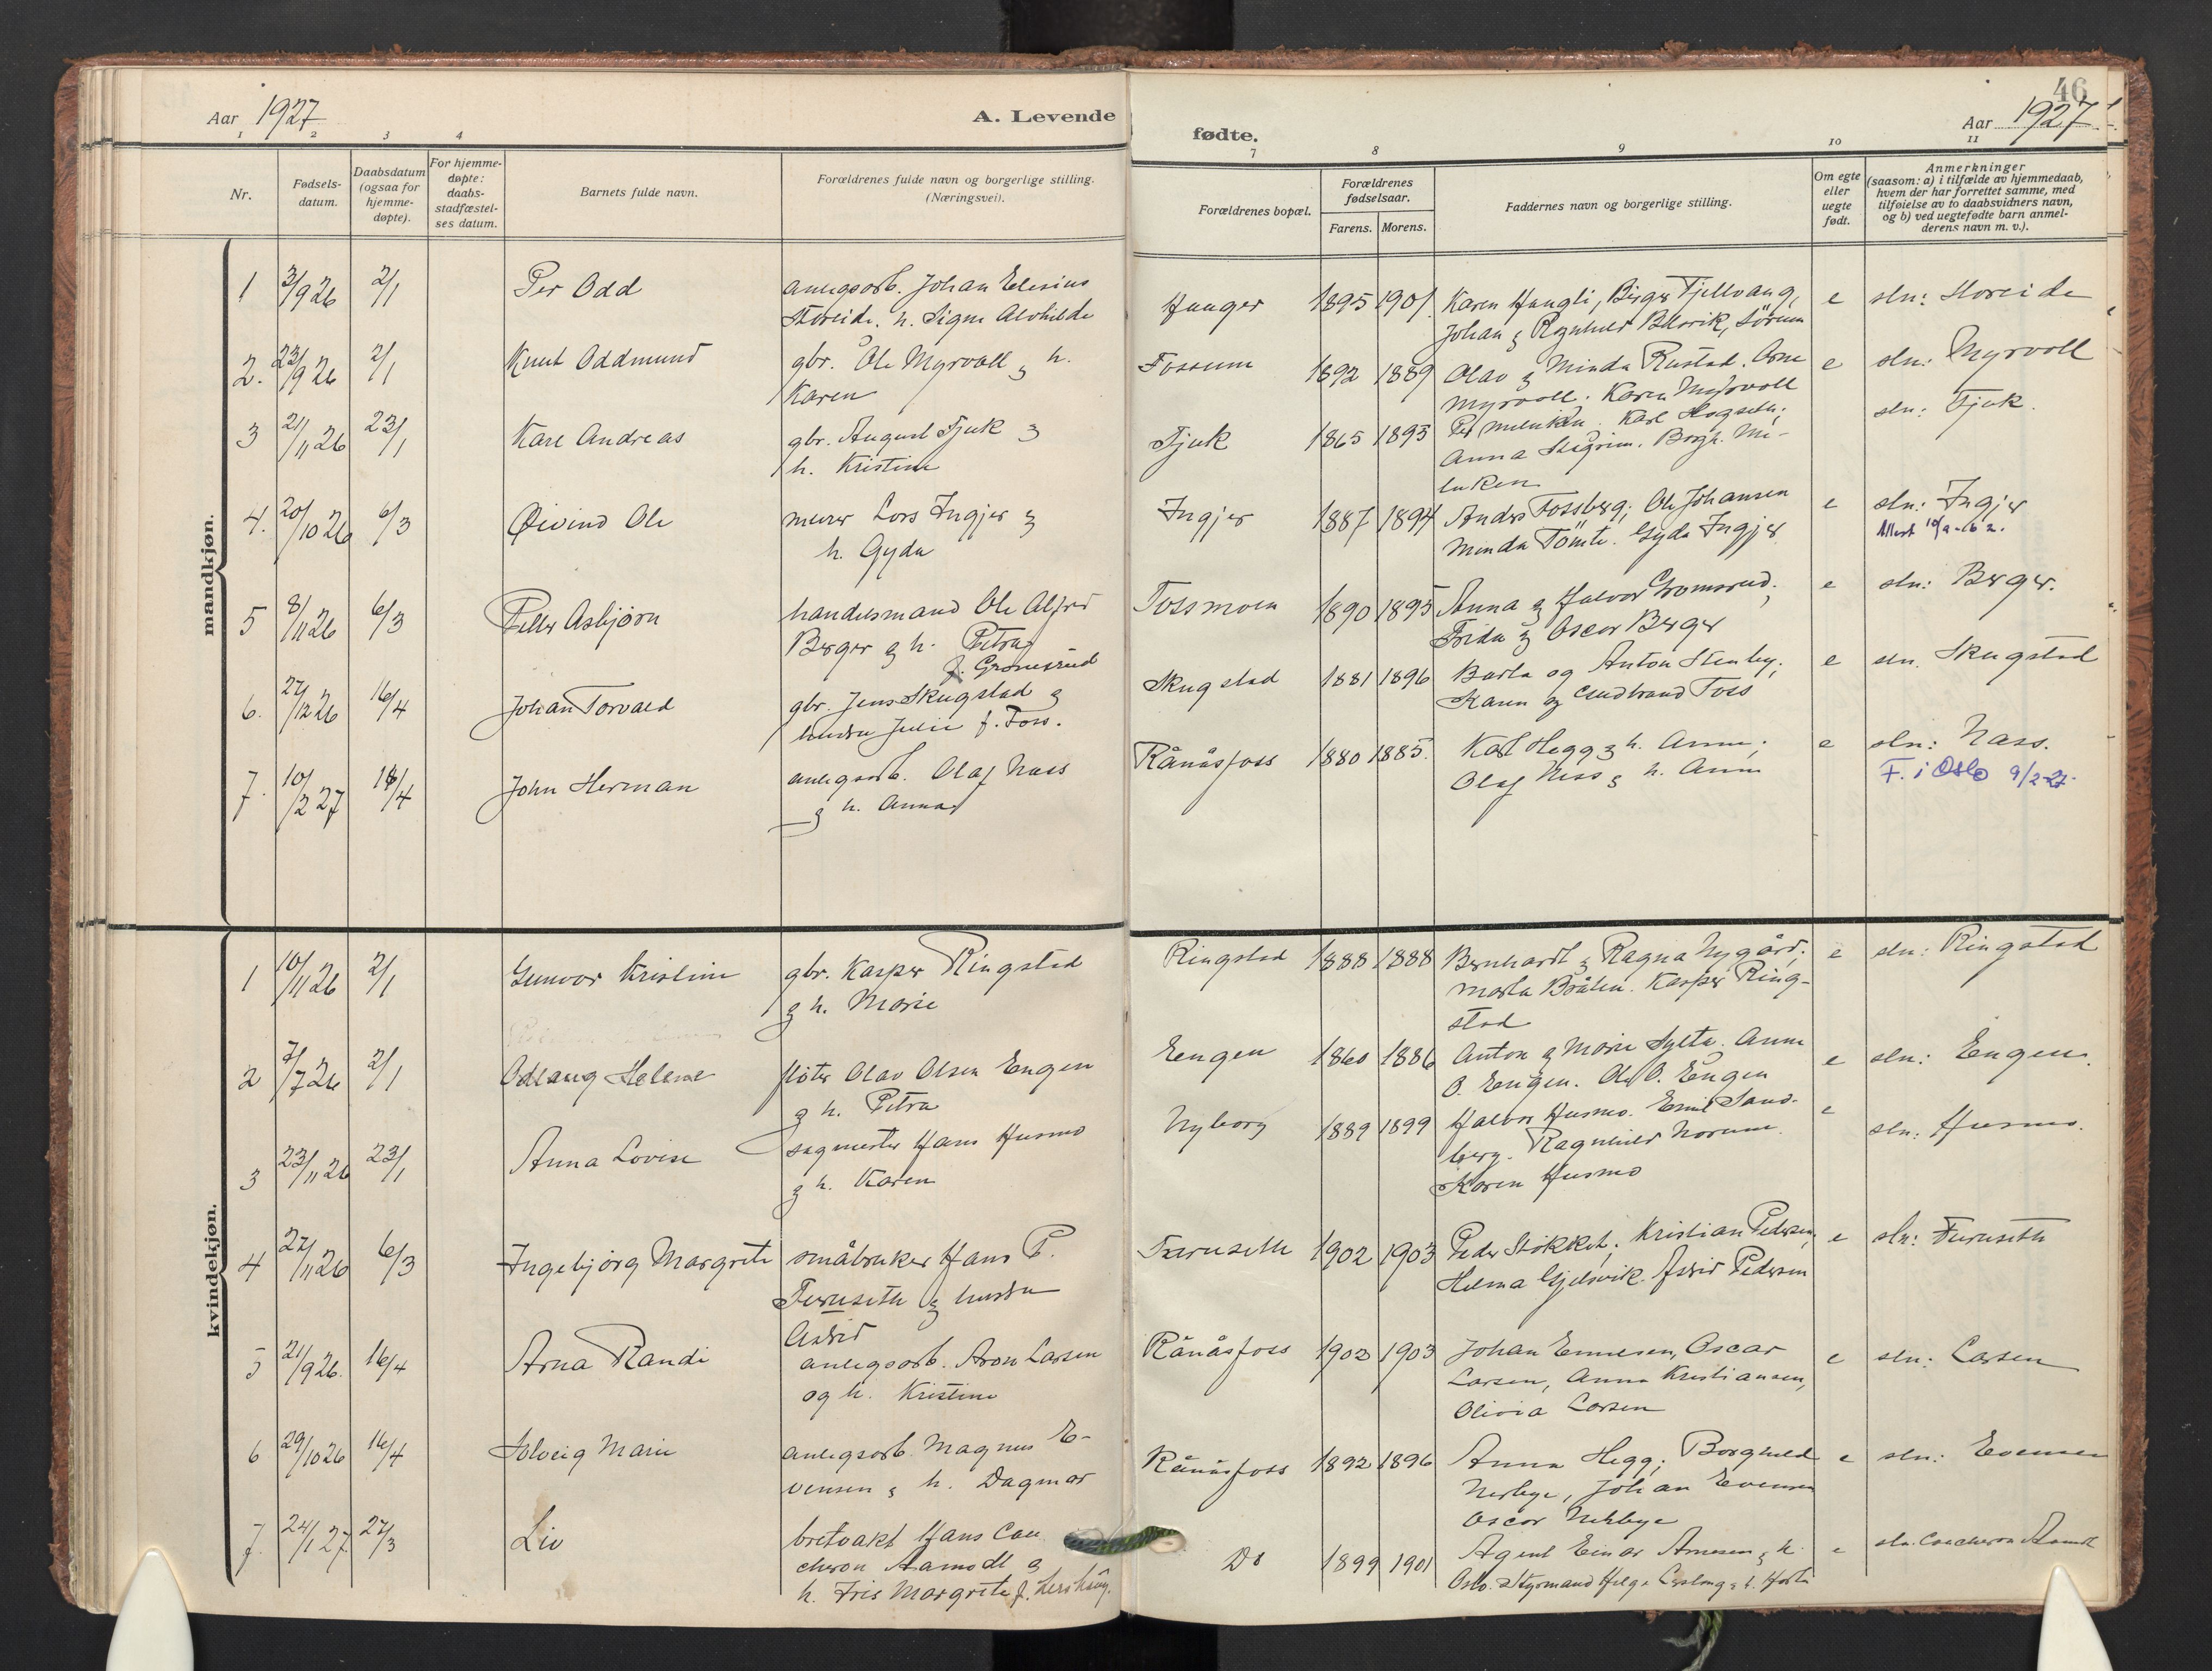 Aar 1927
A. Levende
fødte.
46
Aar 1927
1 2 3 4
7 8 9 10 11
Nr.
Fødsels-
datum.
Daabsdatum
(ogsaa for
hjemme-
døpte).
For hjemme-
døpte:
daabs-
stadfæstel-
ses datum.
Barnets fulde navn.
Forældrenes fulde navn og borgerlige stilling.
(Næringsvei).
Forældrenes bopæl.
Forældrenes
fødselsaar.
Farens. Morens.
Faddernes navn og borgerlige stilling.
Om egte
eller
uegte
født.
Anmerkninger
(saasom: a) i tilfælde av hjemmedaab,
hvem der har forrettet samme, med
tilføielse av to daabsvidners navn,
og b) ved uegtefødte barn anmel-
derens navn m. v.).
mandkjøn.
1 3/9 26 2/1 Per Odd anlegsarb. Johan Elesius Haager 1895 1901 Karen Haugli, Birger Fjellvang, e sln: Storeide
Storeide. h. Signe Alvhilde Johan & Ragnhild Sørum
2. 23/9 26 2/1 Knut Oddmund gbr. Ole Myrvoll & h. Fossum 1892 1889 Olav & Minda Rustad. Arne e sln: Myrvoll
Karen Myrvoll. Karen Myrvoll
3 21/11 26 23/1 Karl Andreas gbr. August Fjuk & Fjuk 1865 1895 Per Karl Hogseth; sln: Fjuk.
h. Kristine Anna Borgh. Mi-
luken
4. 20/10 26 6/3 Øivind Ole murer Lars Ingjer & Ingjer 1887 1894 Anders Fossberg; Ole Johansen e sln: Ingjer
h. Gyda Minda Tömte. Gyda Ingjer
5 8/11 26 6/3 Petter Asbjørn handelsmand Ole Alfred Fossmoen 1890 1895 Anna & Halvor Gromsrud; e sln: Berger.
Berger & h. Petra Frida & Oscar Berger
f. Gromsrud
6. 27/12 26 16/4 Johan Torvald gbr. Jens Skugstad & Skugstad 1881 1896 Barla og Anton Stenby; e sln. Skugstad
hustru Julie f. Foss. Karen og Gudbrand Foss
7. 10/2 27 16/4 John Herman anlegsarb. Olaf Nass Rånåsfoss 1880 1885. Karl Hegg & h. Anna; e sln: Nass.
& h. Anna Olaf Ness & h. Anna F. i Oslo 9/2-27.
kvindekjøn.
1 10/11 26 2/1 Gunvor Kristine gbr. Kasper Ringstad Ringstad 1888 1888 Bernhardt & Ragna Nygård. e sln: Ringstad
& h. Marie Marta Bråten. Kasper Ring-
stad
2 7/7 26 2/1 Odlaug Helene fløter Olav Olsen Engen Engen 1860 1886 Anton & Marie Sylta. Anna e sln: Engen.
& h. Petra O. Engen. Ole O. Engen
3 23/11 26 23/1 Anna Lovise sagmester Hans Husmo Nyborg 1889 1899 Halvor Husmo. Emil Sand- e sln: Husmo.
& h. Karen berg. Ragnhild Norum.
Karen Husmo
4 27/11 26 6/3 Ingebjørg Margrete småbruker Hans P. Furuseth 1902 1903 Peder Stokket; Kristian Pedersen, e sln: Furuseth
Furuseth & hustru Helma Gjelsvik. Astrid Pedersen
Astrid
5 21/9 26. 16/4 Arna Randi anlegsarb. Aron Larsen Rånåsfoss 1902 1903 Johan Ennesen, Oscar e sln: Larsen
og h. Kristine Larsen, Anna Kristiansen,
Olivia Larsen
6 29/10 26 16/4 Solveig Marie anlegsarb. Magnus E- Rånåsfoss 1892 1896 Anna Hegg; Borghild e sln: Evensen
vensen & h. Dagmar Nerbye, Johan Evensen
Oscar Nerbye
7. 24/1 27. 27/3 Liv bretvakt Hans Cou Do 1899 1901 Agent Einar Arnesen & h. e sln. Coucheron Aamodt
cheron Aamodt & Oslo. Styrmand Helge
h. Iris Margrete f.